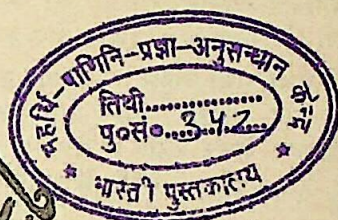 महर्षि-पाणिनि-प्रज्ञा-अनुसन्धान केन्द्र
तिथी..................
पु०सं०....342....
* भारती पुस्तकालय *